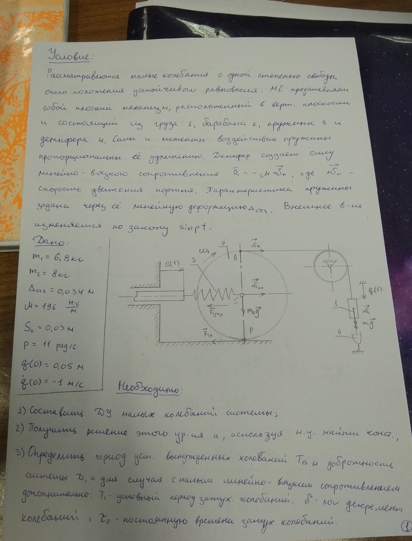 Условие:
Рассматриваются малые колебания с одной степенью свободы
около положения устойчивого равновесия. МС представляет
собой плоский механизм, расположенный в верт. плоскости
и состоящий из груза 1, барабана 2, пружины 3 и
демпфера 4. Силы и моменты воздействия пружины
пропорциональны её удлинению. Демпфер создает силу
линейно-вязкого сопротивления R̄ = -μ v̄п, где v̄п -
скорость движения поршня. Характеристика пружины
задана через её линейную деформацию. Внешнее в-ие
изменяется по закону sinpt.
Дано:
m₁ = 6,8 кг
m₂ = 8 кг
= 0,034 м
μ = 196
S₀ = 0,03 м
P = 11 рад/с
q(0) = 0,05 м
q̇(0) = -1 м/с
S(t)
A
C
P
Необходимо:
1) Составить ДУ малых колебаний системы;
2) Получить решение этого ур-ия и, используя н.у. найти конс.,
3) Определить период вынужденных колебаний Tв и добротность
системы D, а для случая с малым линейно-вязким сопротивлением
дополнительно: T₁ - условный период затух. колебаний, δ - лог декремент
колебаний, τ₀ - постоянную времени затух. колебаний.
1